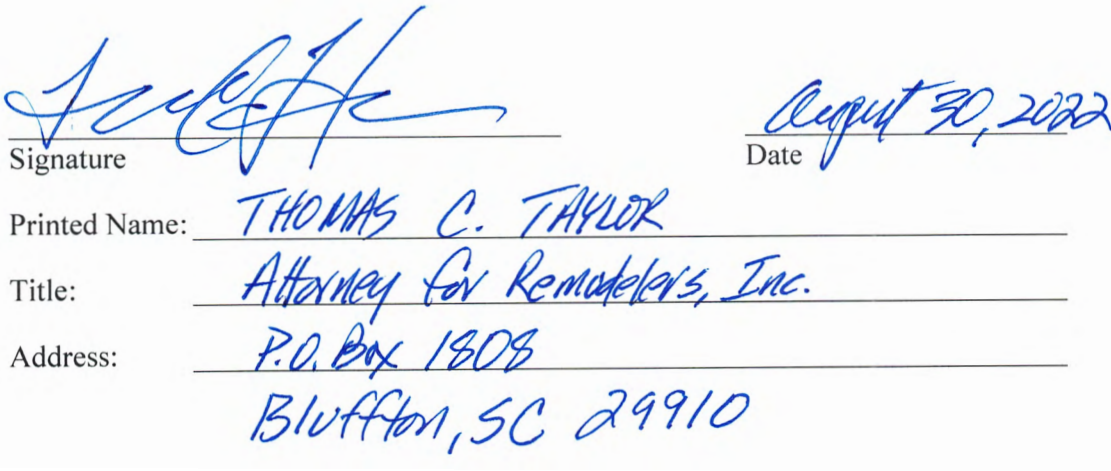 August 30, 2022
Signature Date
Printed Name: THOMAS C. TAYLOR
Title: Attorney for Remodelers, Inc.
Address: P.O. Box 1808
Bluffton, SC 29910